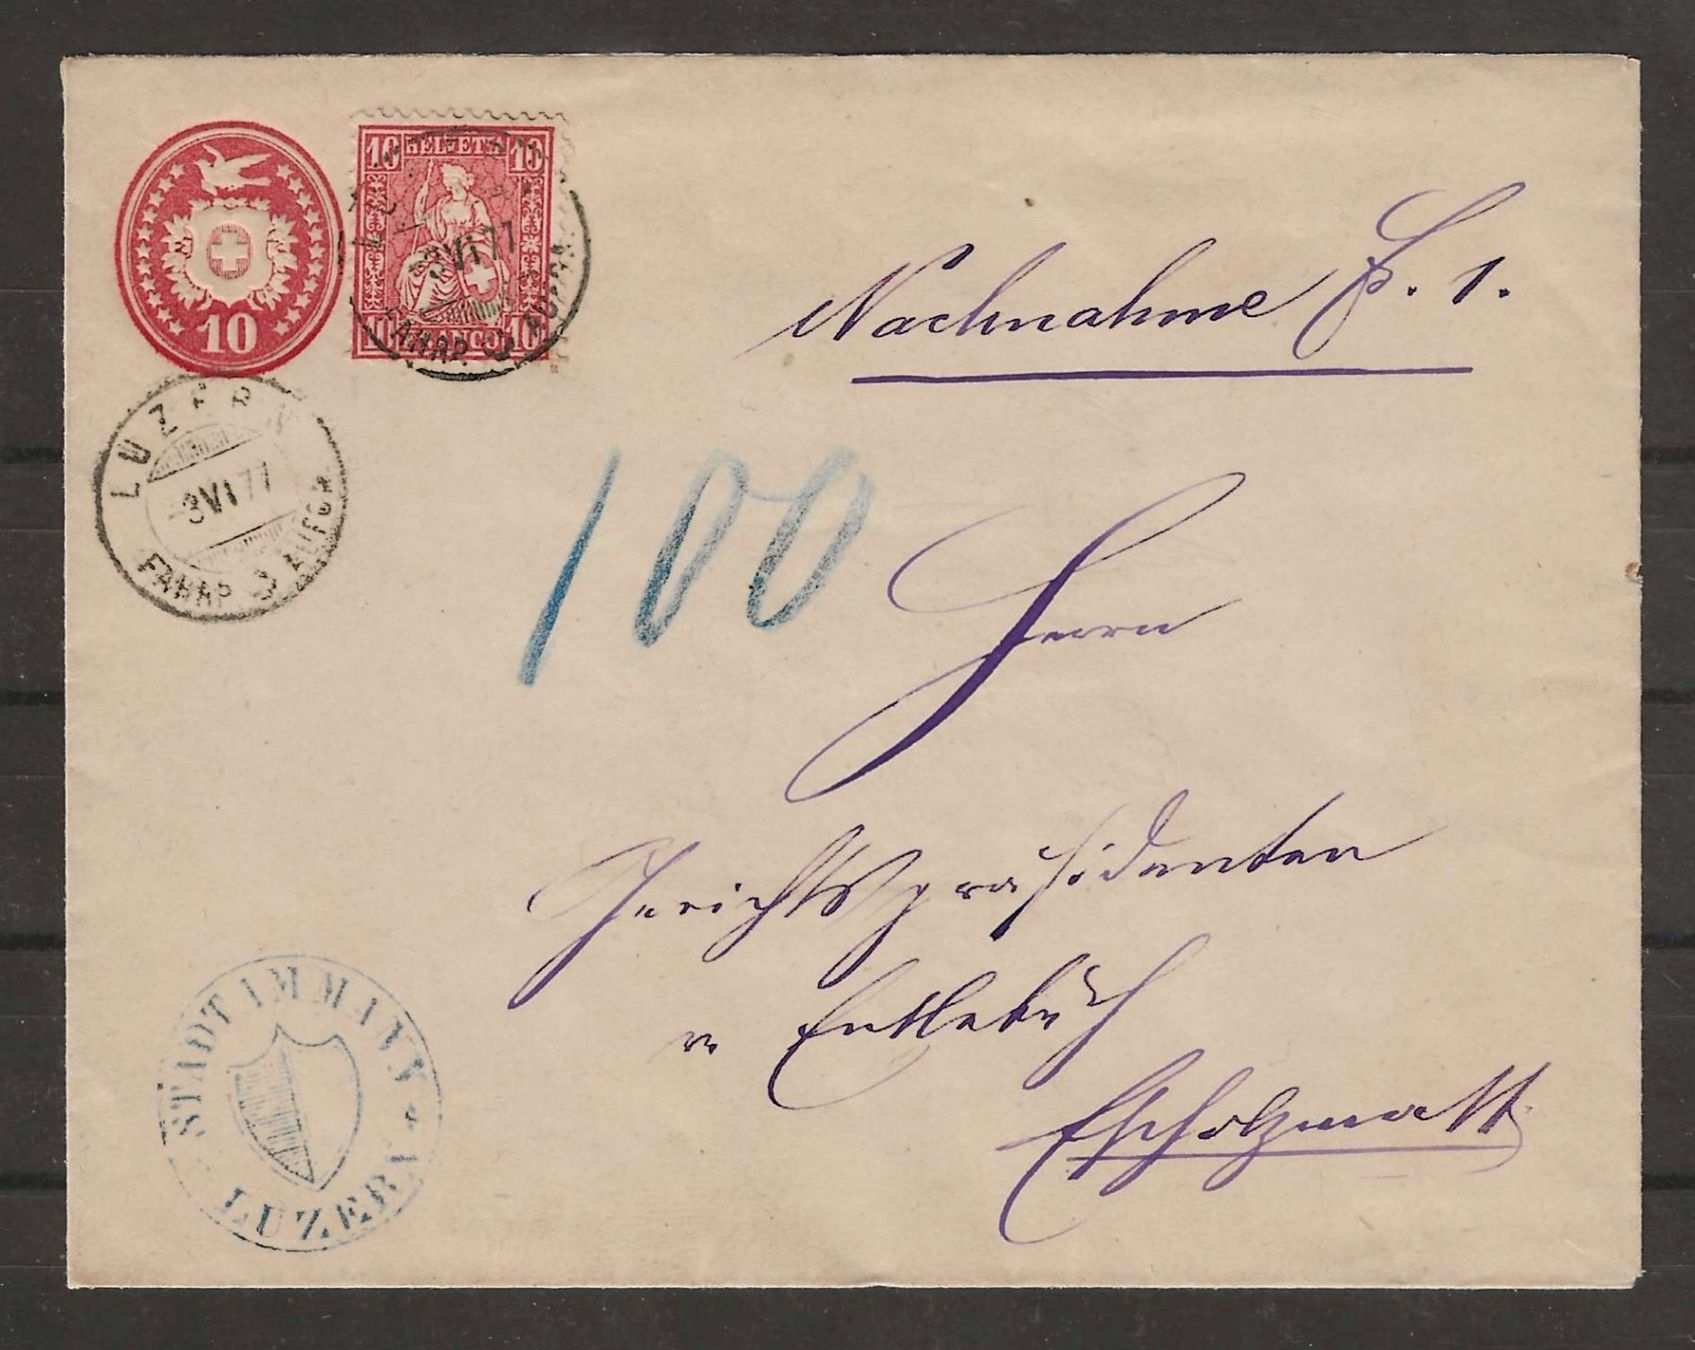 10
10 HELVETIA 10
10 FRANCO 10
LUZERN
3 VI 77
FAHRP. AUFG.
LUZERN
3 VI 77
FAHRP. AUFGR.
Nachnahme Fr. 1.
100
Herrn
Gerichtspräsidenten
v. Entlebuch
Escholzmatt
STADTAMMANN
LUZERN